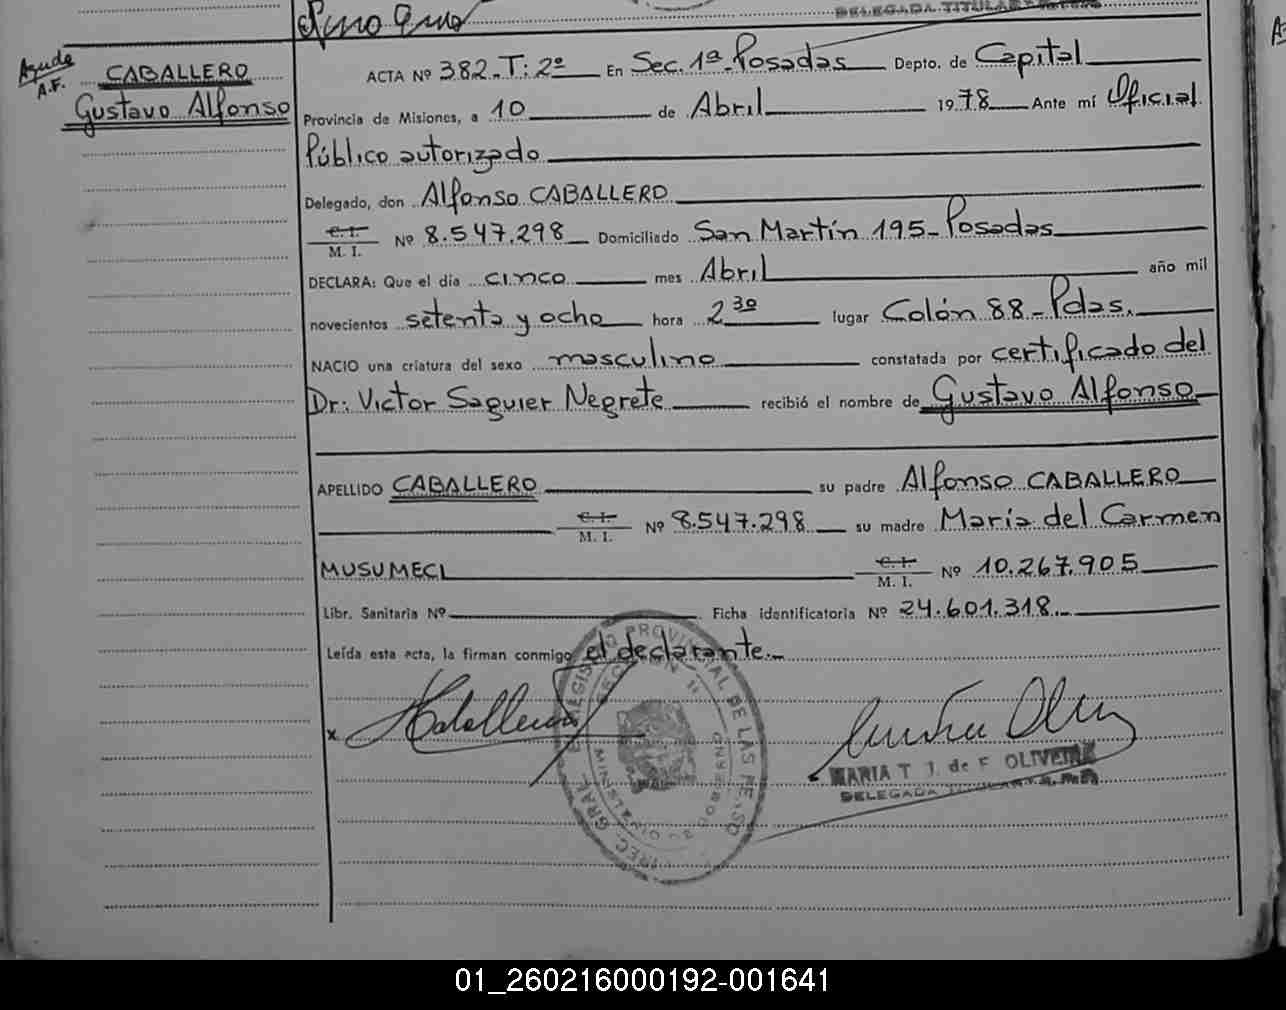 DELEGADA TITULAR
Ayude
A.F.
CABALLERO
Gustavo Alfonso
ACTA Nº 382.T: 2º En Sec. 1ª Posadas Depto. de Capital
Provincia de Misiones, a 10 de Abril 1978 Ante mí Oficial
Público autorizado
Delegado, don Alfonso CABALLERO
C. I.
M. I. Nº 8.547.298 Domiciliado San Martín 195-Posadas
DECLARA: Que el día cinco mes Abril año mil
novecientos setenta y ocho hora 2 30 lugar Colón 88-Pdas.
NACIO una criatura del sexo masculino constatada por certificado del
Dr: Victor Saguier Negrete recibió el nombre de Gustavo Alfonso
APELLIDO CABALLERO su padre Alfonso CABALLERO
C. I.
M. I. Nº 8.547.298 su madre María del Carmen
MUSUMECI C. I.
M. I. Nº 10.267.905
Libr. Sanitaria Nº Ficha identificatoria Nº 24.601.318.-
Leída esta acta, la firman conmigo el declarante.-
x
MARIA T. J. de F. OLIVEIRA
DELEGADA TITULAR
01_260216000192-001641